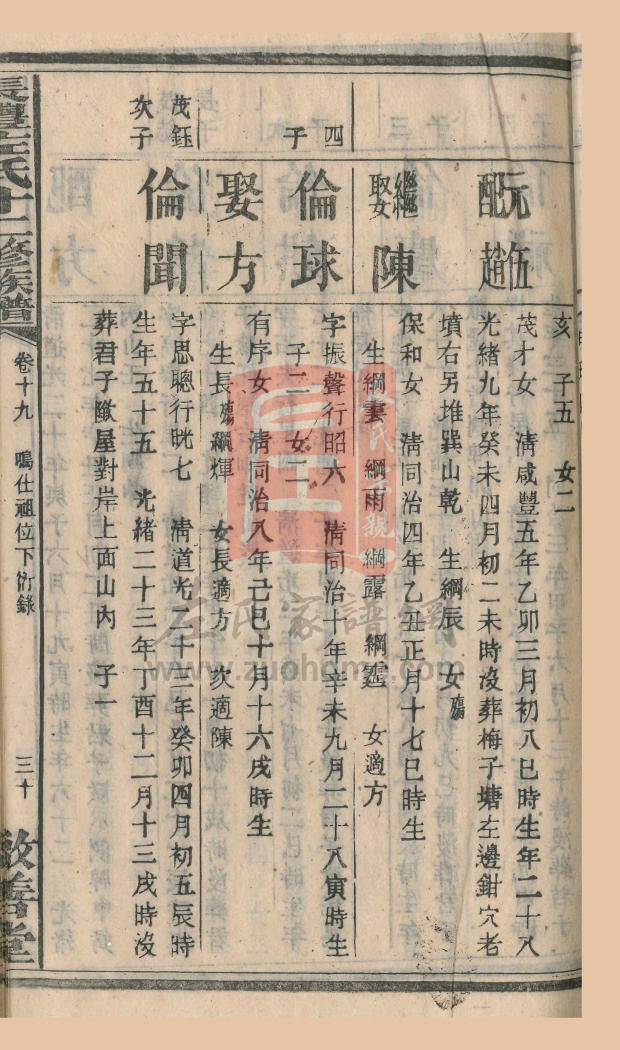 亥 子五 女二
元配
伍趙
茂才女 清咸豐五年乙卯三月初八巳時生年二十八
光緒九年癸未四月初二未時沒葬梅子塘左邊鉗穴老
墳右另堆巽山乾 生綱辰 女殤
繼娶
陳
保和女 清同治四年乙丑正月十七巳時生
生綱雲 綱雨 綱露 綱霆 女適方
四子
倫球
字振聲行昭六 清同治十年辛未九月二十八寅時生
子二 女二
娶方
有序女 清同治八年己巳十月十六戌時生
生長殤綱煇 女長適方 次適陳
茂鈺次子
倫聞
字思聰行晄七 清道光二十三年癸卯四月初五辰時
生年五十五 光緒二十三年丁酉十二月十三戌時沒
葬君子墩屋對岸上面山內 子一
左氏十二修族譜
卷十九 鳴仕祖位下衍錄
三十
敦善堂
左氏家譜網
www.zuohome.com